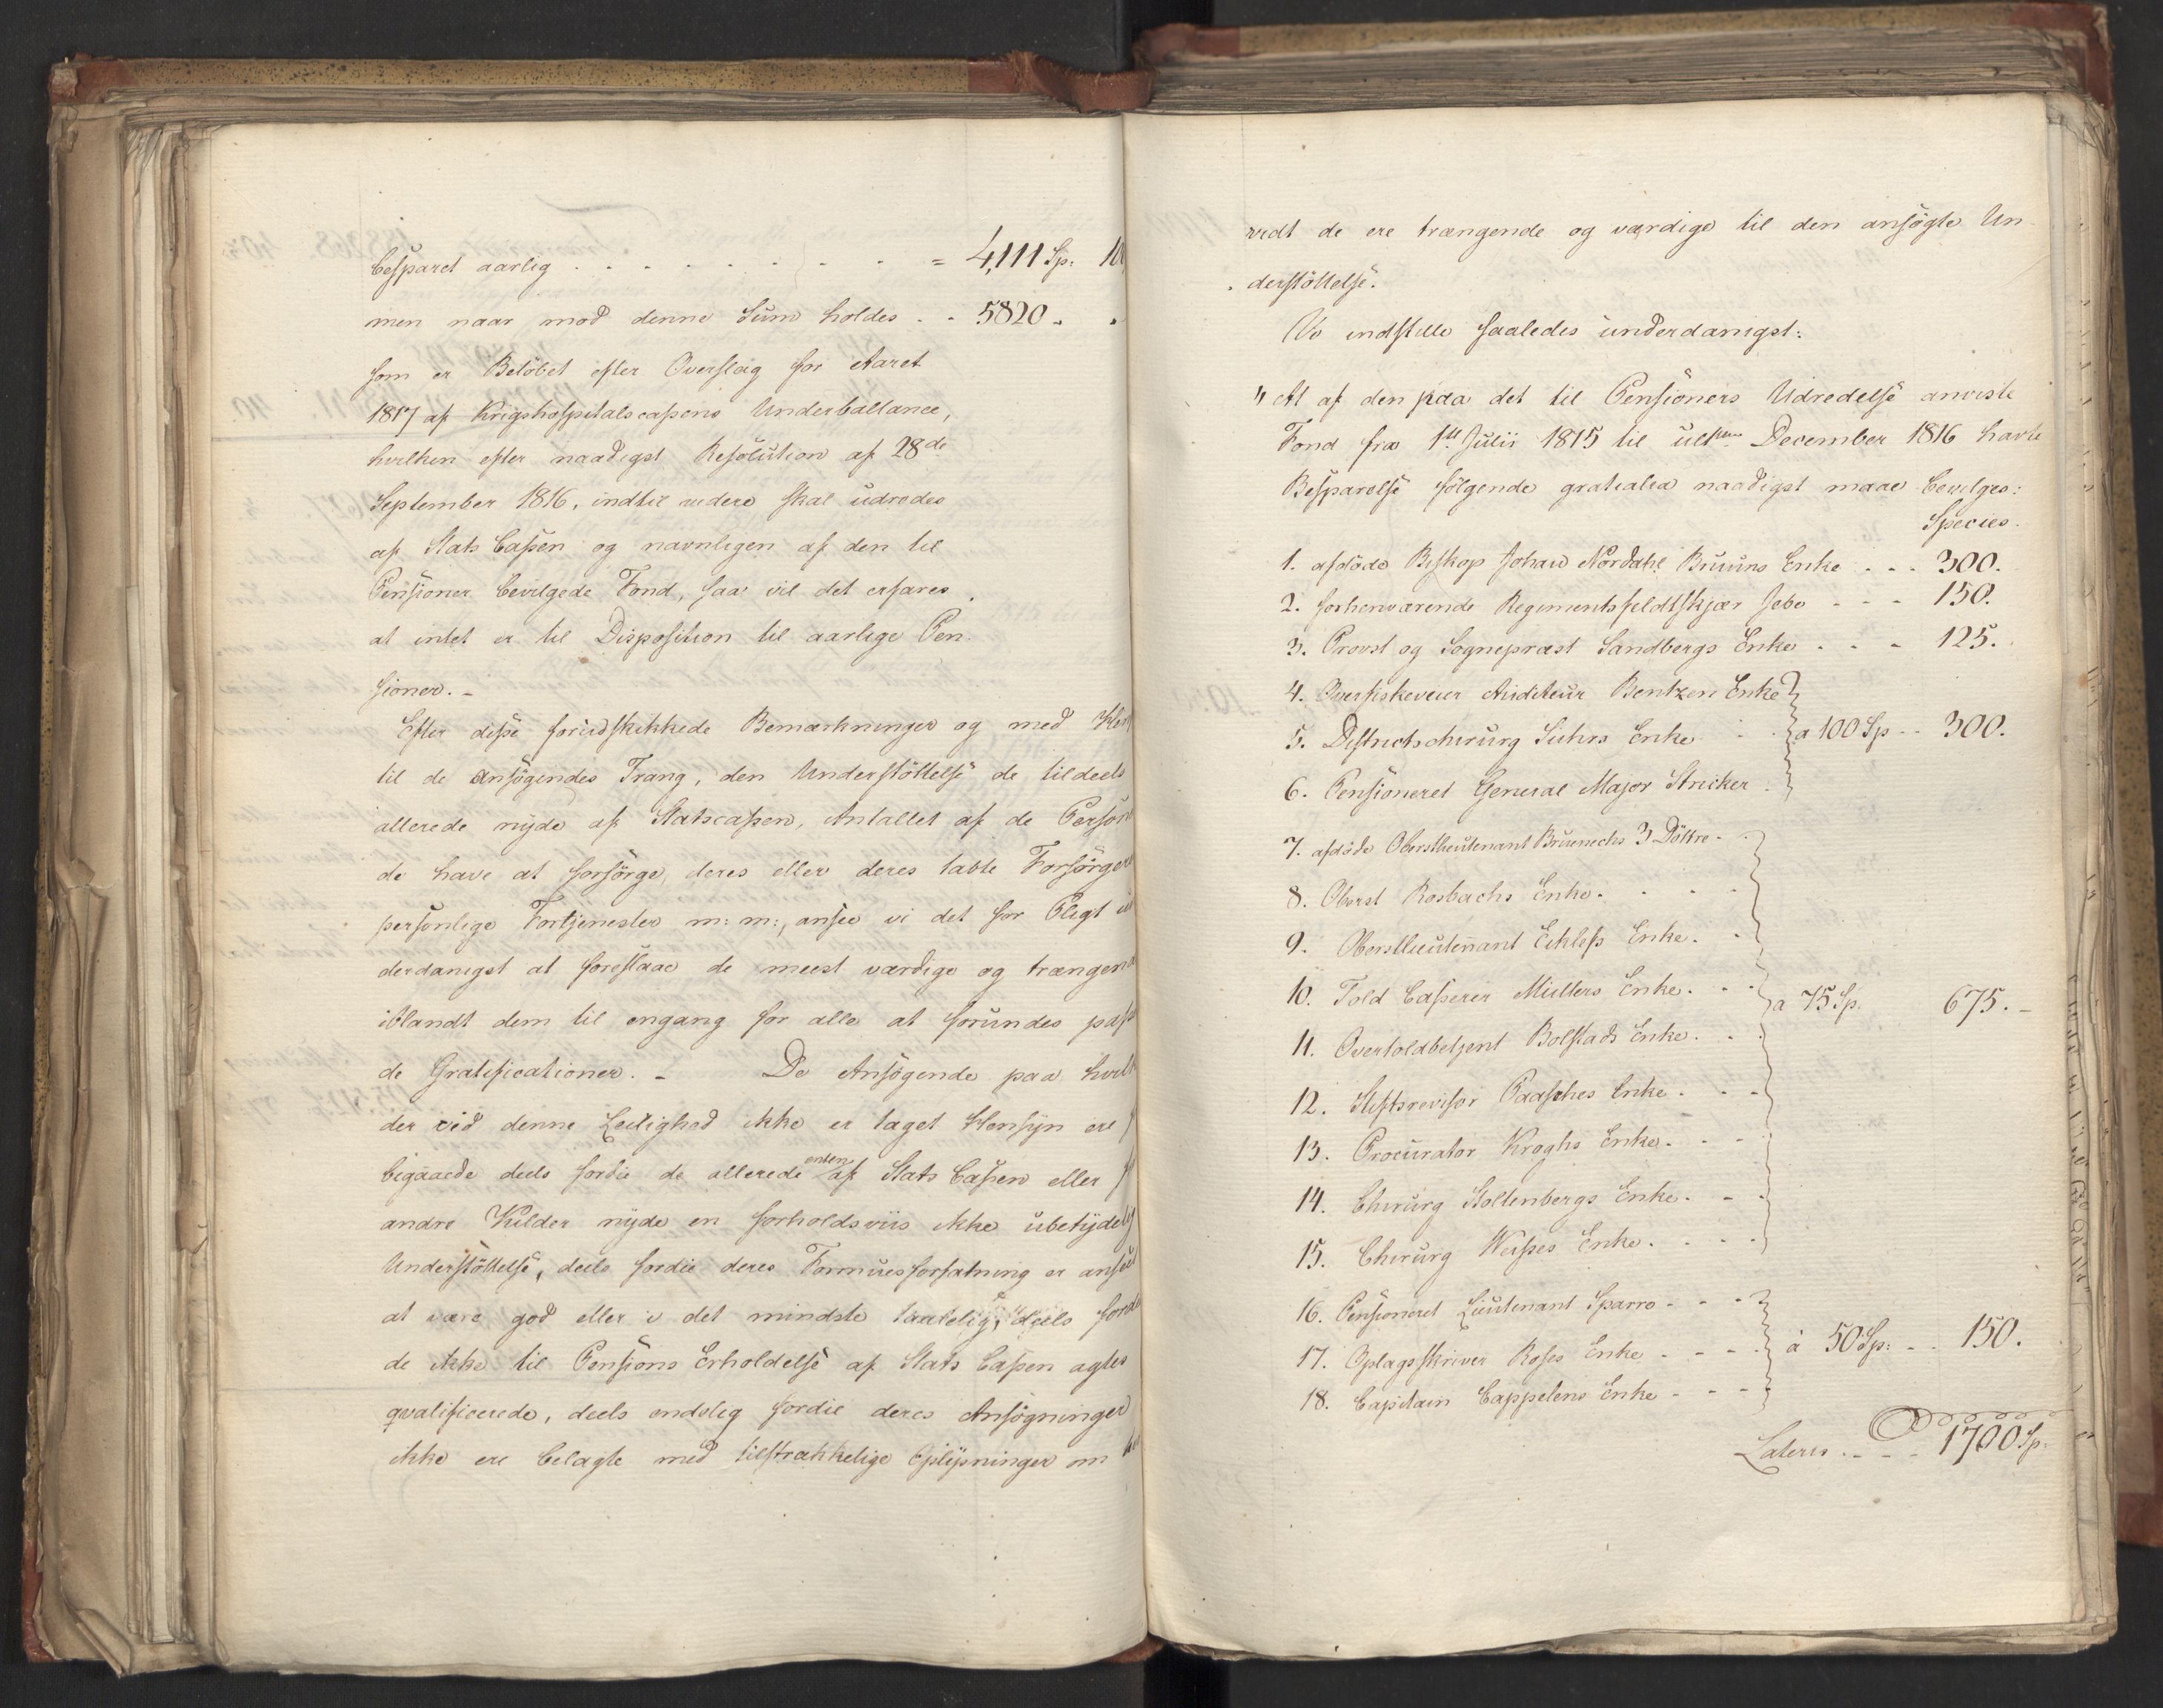 besparet aarlig . . . . . . . . = 4,111 Sp:
men naar mod denne Sum holdes . . 5820 „ „
som er Beløbet efter Overslag for Aaret
1817 af Krigshospitalscassens Underballance,
hvilken efter naadigst Resolution af 28de
September 1816, indtil videre skal udredes
af Stats Cassen og navnligen af den til
Pensioner bevilgede Fond, saa vil det erfares
at intet er til Disposition til aarlige Pen-
sioner. –
Efter disse forudskikkede Bemærkninger og med
til de Ansøgendes Trang, den Understøttelse de tildeels
allerede nyde af Statscassen, Antallet af de
de have at forsørge, deres eller deres tabte
personlige Fortjenester m: m:, ansee vi det for Pligt
derdanigst at foreslaae de meest værdige og
iblandt dem til engang for alle at forundes
de Gratificationer. – De Ansøgende paa
der ved denne Leilighed ikke er taget Hensyn ere
bigaaede deels fordie de allerede enten af Stats Cassen eller
andre Kilder nyde en forholdsviis ikke
Understøttelse, deels fordie deres Formuesforfatning er
at være god eller i det mindste taalelig, deels
de ikke til Pensions Erholdelse af Stats Cassen agtes
qvalificerede, deels endelig fordie deres Ansøgninger
ikke ere belagte med tilstrækkelige Oplysninger om
vidt de ere trængende og værdige til den ansøgte Un-
derstøttelse.
Vi indstille saaledes underdanigst:
„At af den paa det til Pensioners Udredelse anviste
Fond fra 1ste Julii 1815 til ult December 1816 havte
Besparelse følgende gratialer naadigst maae bevilges:
Species.
1. afdøde Biskop Johan Nordahl Bruuns Enke . . . 300.
2. forhenværende Regimentsfeldtskjær Jebe - - - 150.
3. Provst og Sognepræst Sandbergs Enke . . - 125.
4. Auditeur Bentzens Enke
5. Districtschirurg Suhrs Enke . . a 100 Sp - - 300.
6. Pensioneret General Major Stricker .
7. afdøde Oberstlieutenant Bruenechs 3 Døttre -
8. Oberst Rosbachs Enke. . . .
9. Oberstlieutenant Enke. .
10. Told Casserer Müllers Enke. . . a 75 Sp. 675. –
11. Overtoldbetjent Bolstads Enke. . .
12. Stiftsrevisor Paasches Enke. . .
13. Procurator Kroghs Enke. - -
14. Chirurg Stoltenbergs Enke. - .
15. Chirurg Weisses Enke. . . .
16. Pensioneret Lieutenant Sparre - - -
17. Oplagsskriver Roses Enke - - - . à 50 Sp: - . 150.
18. Capitain Cappelens Enke - - -
Lateris . - - - 1700 Sp: